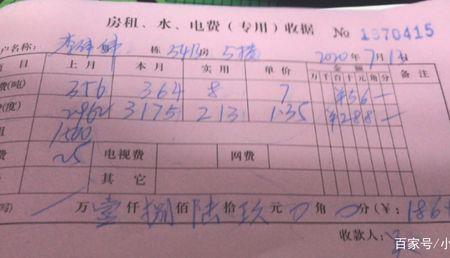 房租、水、电费（专用）收据 No 1870415
户名称： 栋 541房 2020年7月1日
项目 上月 本月 实用 单价 金额 备注
万 千 百 十 元 角 分
费(吨) 356 364 8 7 ¥56—
(度) 2962 3175 213 1.35 ¥288—
租 1500
费 25 电视费 网费
其它
写) 万壹仟捌佰陆拾玖元0角0分(¥:186
收款人：
百家号/小